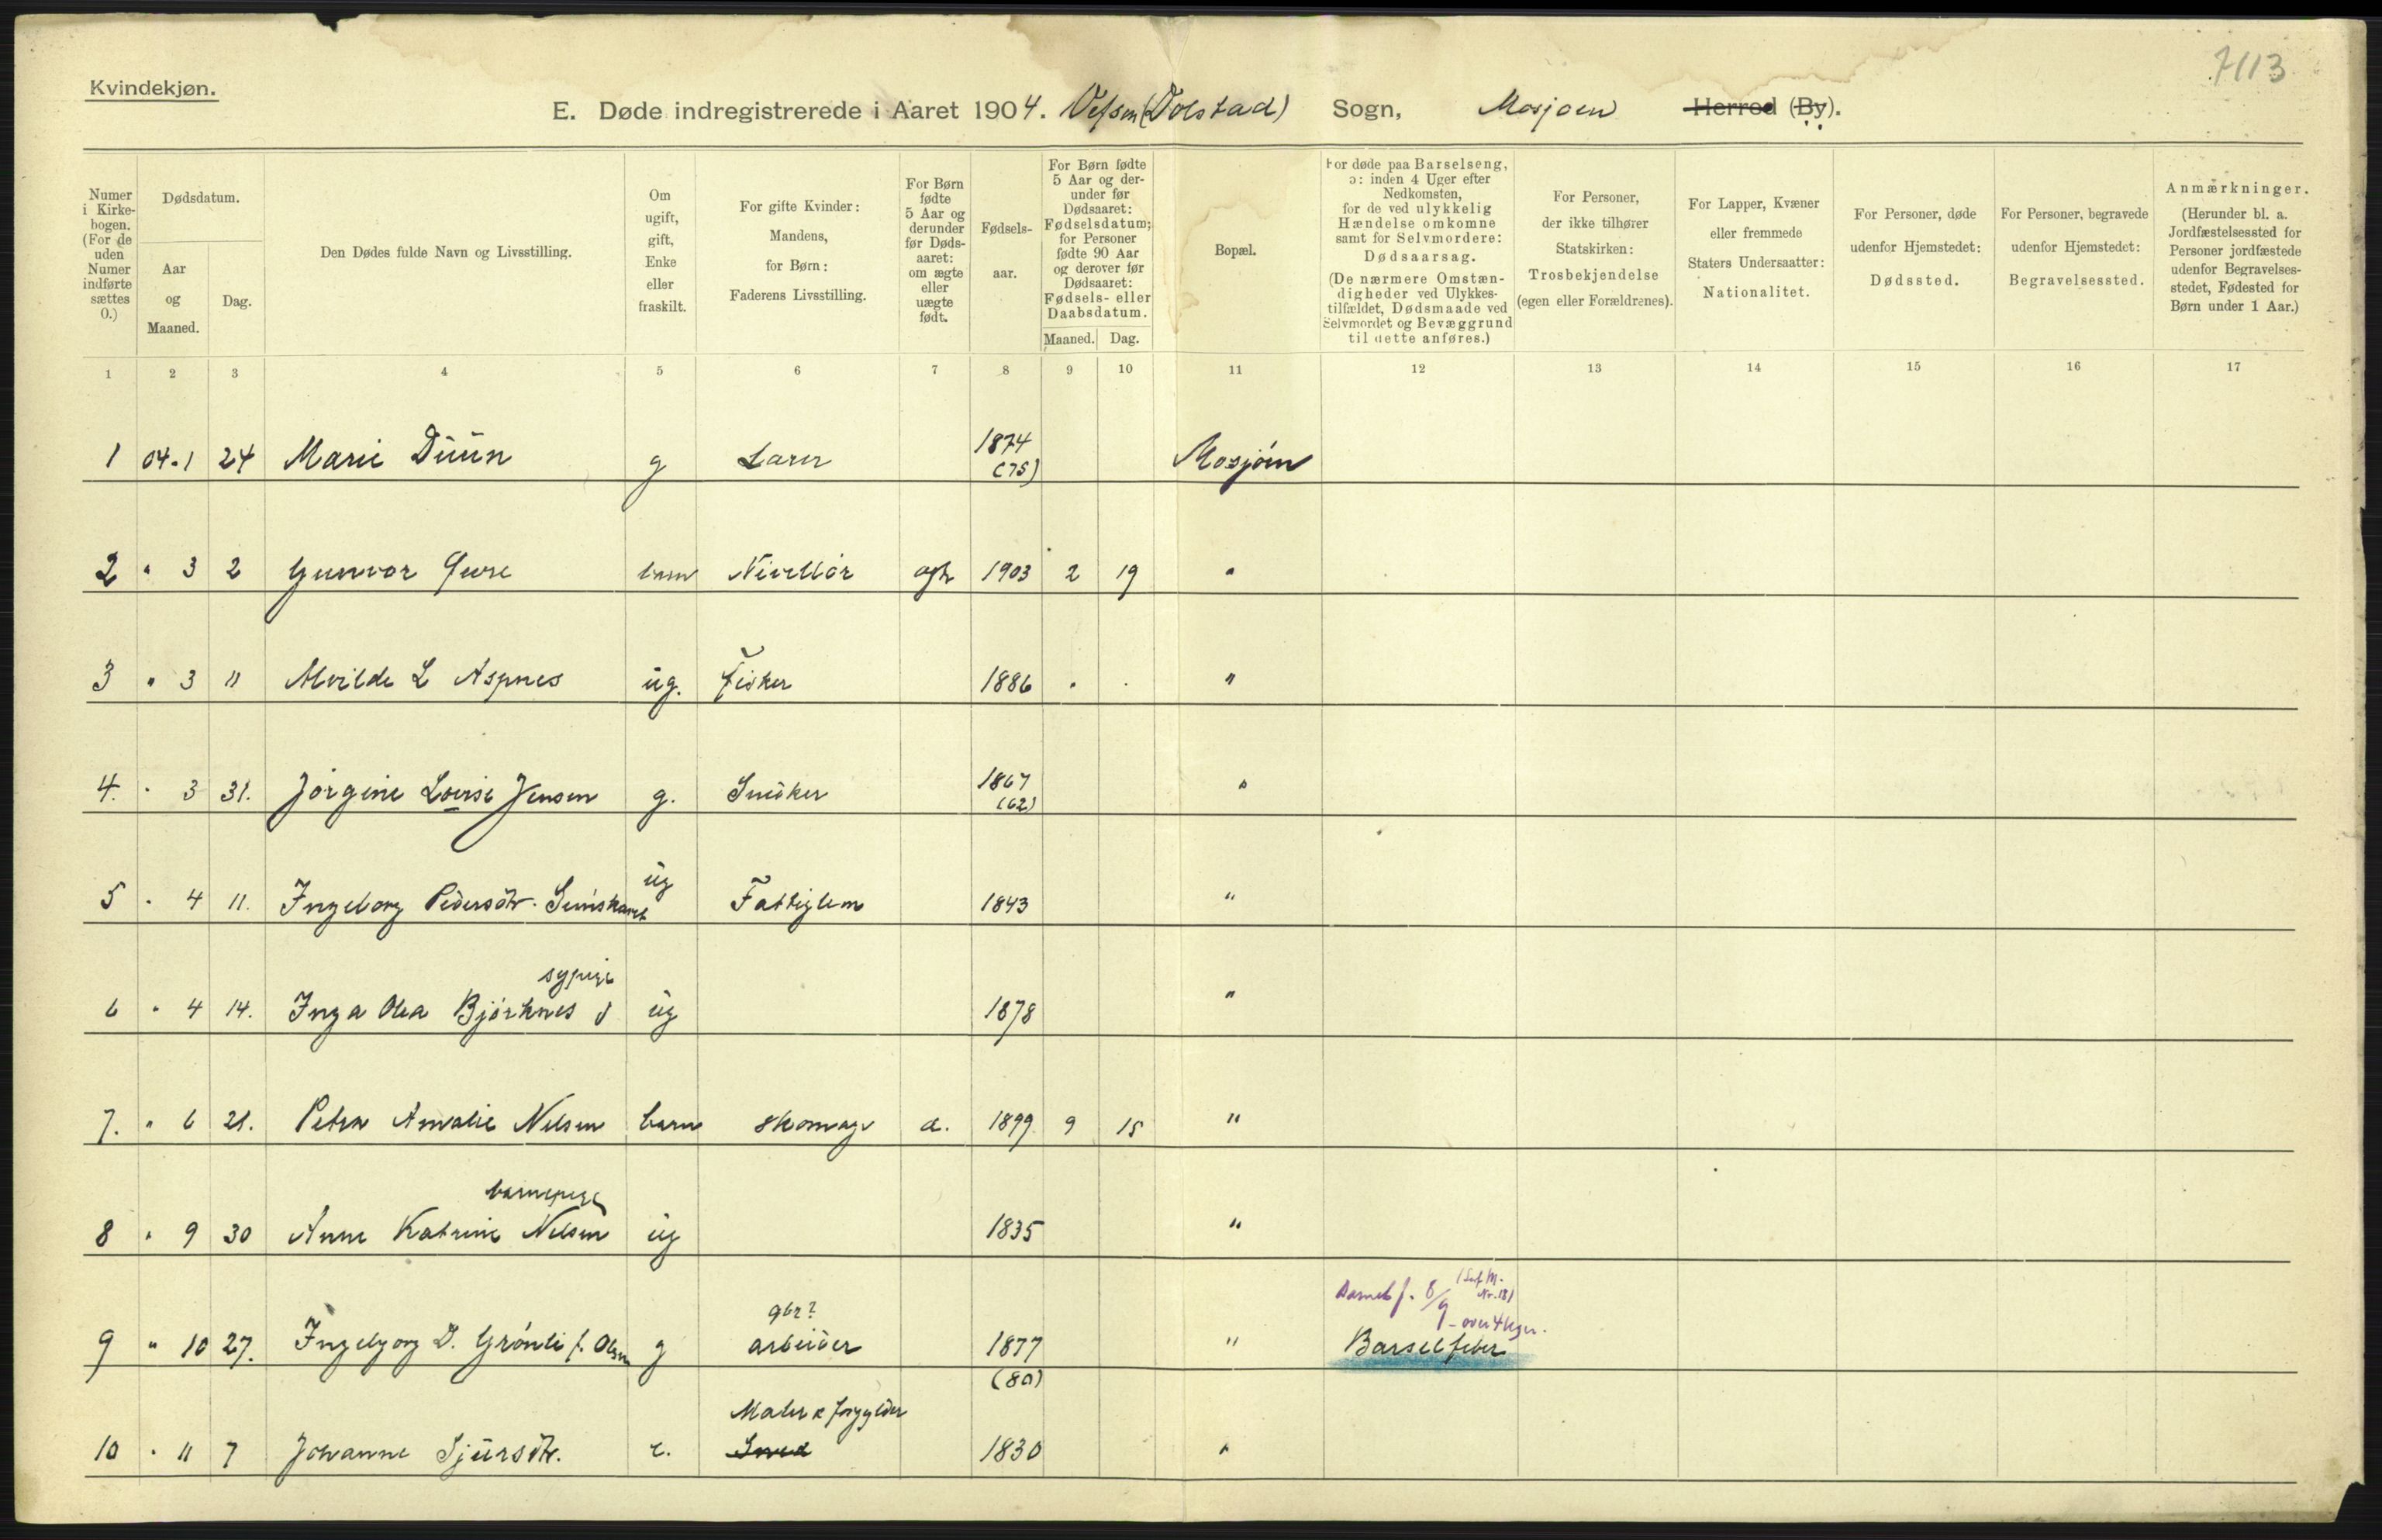 7113
Kvindekjøn.
E. Døde indregistrerede i Aaret 1904. Vefsen (Dolstad) Sogn, Mosjoen Herred (By).
Numer i Kirkebogen. (For de uden Numer indførte sættes 0.)
Dødsdatum.
Aar og Maaned.
Dag.
Den Dødes fulde Navn og Livsstilling.
Om ugift, gift, Enke eller fraskilt.
For gifte Kvinder: Mandens, for Børn: Faderens Livsstilling.
For Børn fødte 5 Aar og derunder før Dødsaaret: om ægte eller uægte født.
Fødselsaar.
For Børn fødte 5 Aar og derunder før Dødsaaret: Fødselsdatum; for Personer fødte 90 Aar og derover før Dødsaaret: Fødsels- eller Daabsdatum.
Maaned. Dag.
Bopæl.
For døde paa Barselseng, ɔ: inden 4 Uger efter Nedkomsten, for de ved ulykkelig Hændelse omkomne samt for Selvmordere: Dødsaarsag. (De nærmere Omstændigheder ved Ulykkestilfældet, Dødsmaade ved Selvmordet og Bevæggrund til dette anføres.)
For Personer, der ikke tilhører Statskirken: Trosbekjendelse (egen eller Forældrenes).
For Lapper, Kvæner eller fremmede Staters Undersaatter: Nationalitet.
For Personer, døde udenfor Hjemstedet: Dødssted.
For Personer, begravede udenfor Hjemstedet: Begravelsessted.
Anmærkninger. (Herunder bl. a. Jordfæstelsessted for Personer jordfæstede udenfor Begravelsesstedet, Fødested for Børn under 1 Aar.)
1 2 3 4 5 6 7 8 9 10 11 12 13 14 15 16 17
1 04.1 24 Marie Duun g Larer 1874 (75) Mosjöen
2 " 3 2 Gunvor barn ægte 1903 2 19 "
3 " 3 11 Alvilde L Aspnes ug. Fisker 1886 . . "
4. " 3 31. Jörgine Lovise Jensen g. Snedker 1867 (62) "
5 " 4 11. Ingeborg Pedersdtr. ug Fattiglem 1843 "
sypige
6 " 4 14. Inga Olea Björknes ug 1878 "
7. " 6 21. Petra Amalie Nilsen barn skomager æ. 1899 9 15 "
barnepige
8 " 9 30 Anne Katrine Nilsen ug 1835 "
gbr? Barnet f. 8/9 Nr. 18)
- over 4 Uger.
9 " 10 27. Ingebjorg D. Grönli f. Olsen g arbeider 1877 (80) " Barselfeber
Maler & forgylder
10 " 11 7 Johanne Sjursdtr. e. Smed 1830 "